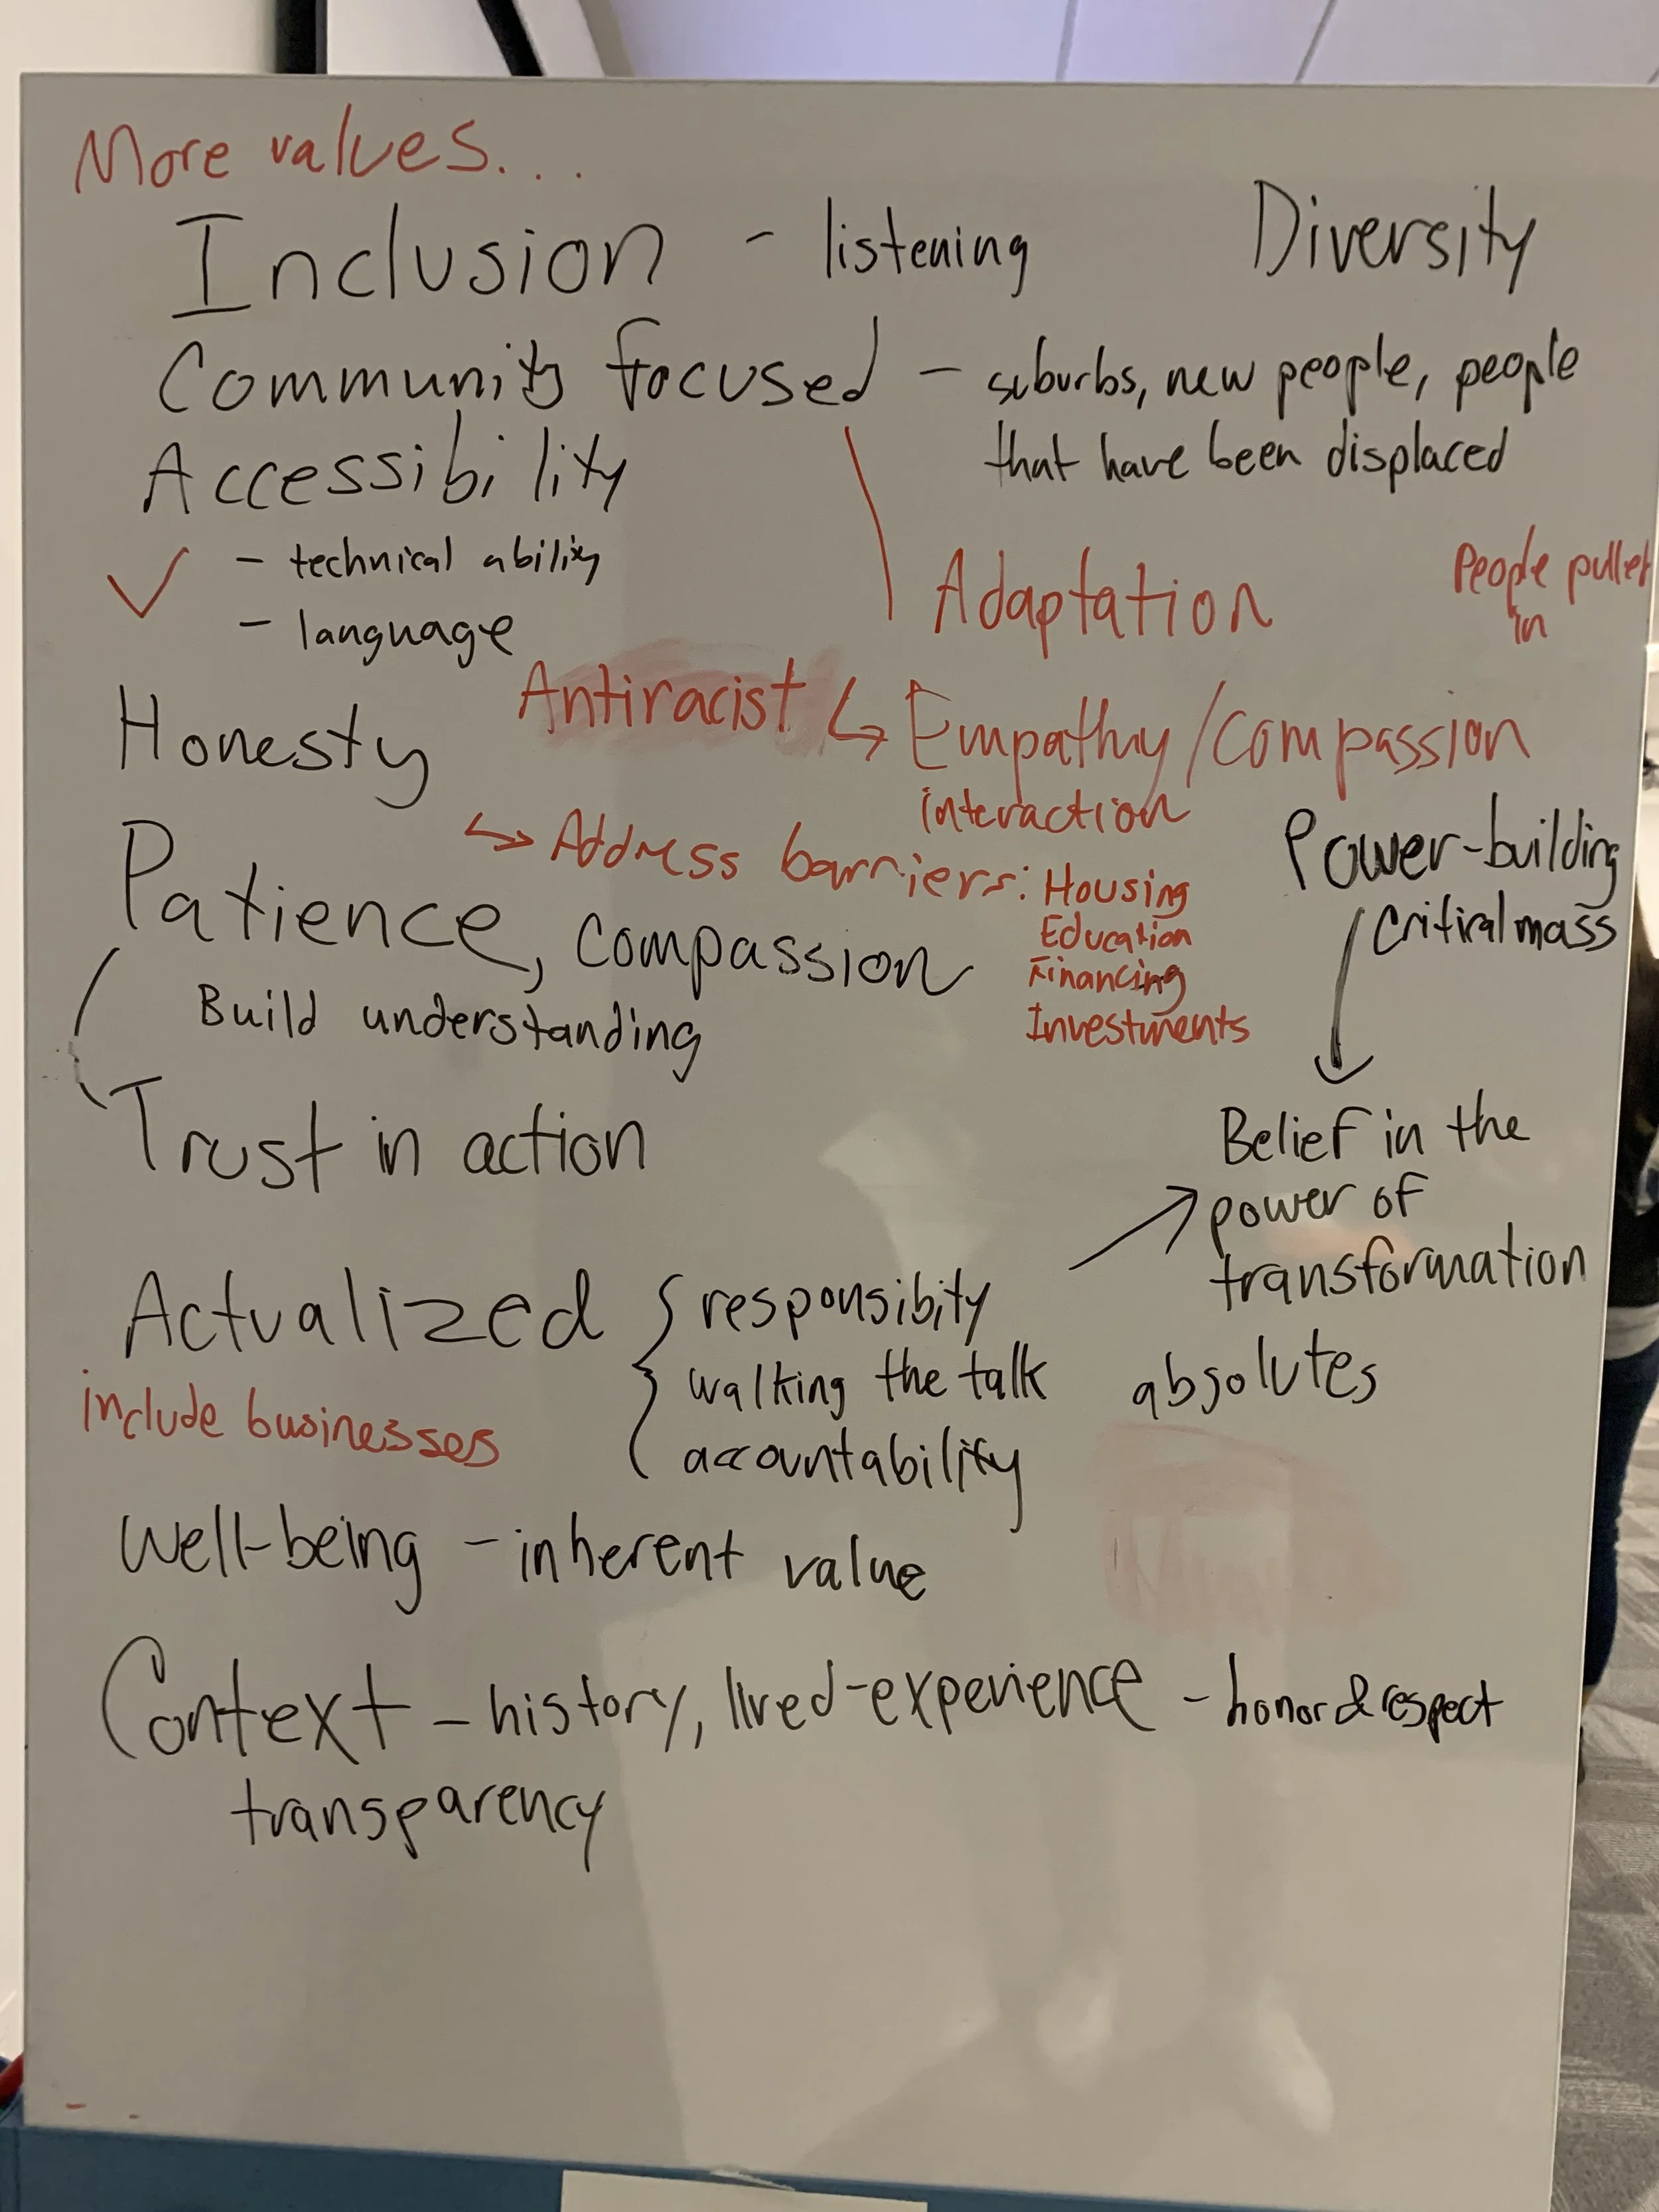 More values...
Inclusion - listening
Diversity
Community focused - suburbs, new people, people
that have been displaced
Accessibility
- technical ability
- language
Adaptation
People pulled
in
Antiracist ↳ Empathy/compassion
interaction
Honesty
↳ Address barriers: Housing
Education
Financing
Investments
Power-building
critical mass
Patience, compassion
Build understanding
Trust in action
Belief in the
power of
transformation
Actualized { responsibity
walking the talk
accountability
absolutes
include businesses
Well-being - inherent value
Context - history, lived-experience - honor & respect
transparency